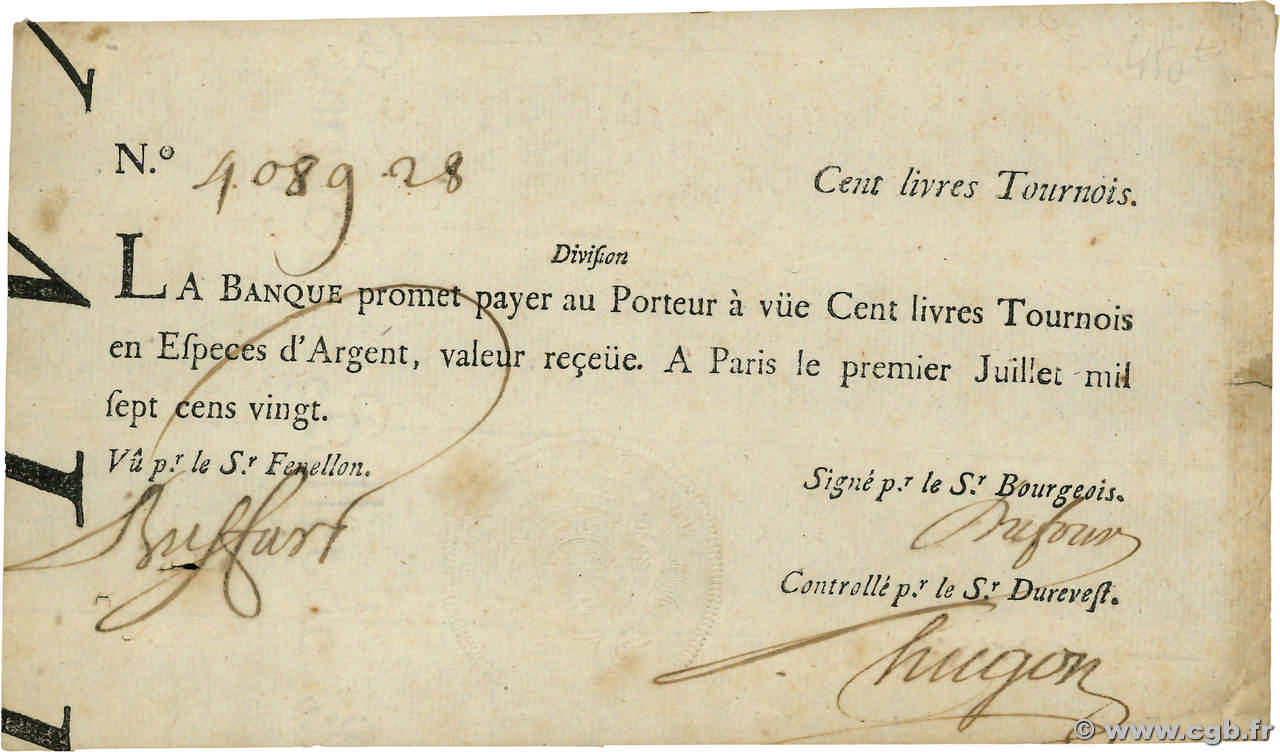 N.º 408928
Cent livres Tournois.
Diviſion
LA BANQUE promet payer au Porteur à vüe Cent livres Tournois
en Eſpeces d'Argent, valeur reçeüe. A Paris le premier Juillet mil
ſept cens vingt.
Vû p.r le S.r Fenellon.
Signé p.r le S.r Bourgeois.
Dufour
Controllé p.r le S.r Dureveſt.
© www.cgb.fr